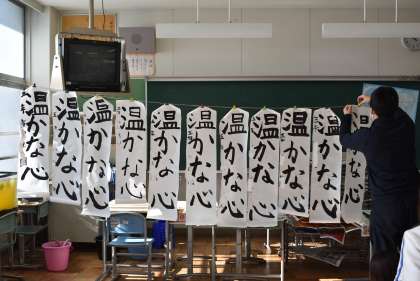 温かな心
温かな心
温かな心
温かな心
温かな心
温かな心
温かな心
温かな心
温かな心
温かな心
温かな心